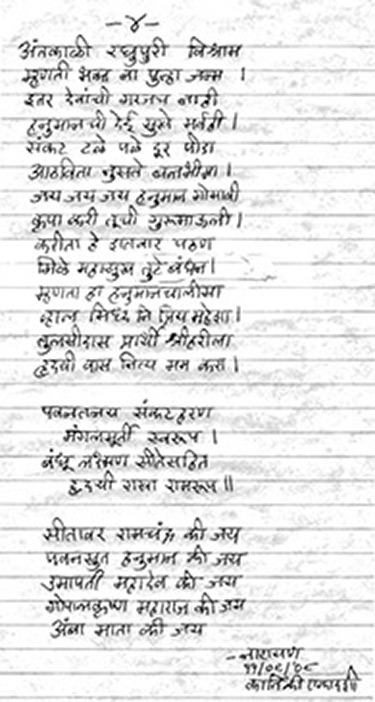 -४-
अंतकाळी रघुपुरी विश्राम
म्हणती भक्त ना पुन्हा जन्म ।
इतर देवांची गरजच नाही
हनुमानची देई सुखे सर्वही ।
संकट टळे पळे दूर पीडा
आठविता नुसते बलभीमा ।
जय जय जय हनुमान गोसावी
कृपा करी तूची गुरूमाऊली ।
करीता हे शतवार पठण
मिळे महासुख तुटे बंधन ।
म्हणता हा हनुमानचालीसा
व्हाल सिध्द नि प्रिय महेशा ।
तुलसीदास प्रार्थी श्रीहरीला
हृदयी वास नित्य मम करा ।
पवनतनय संकटहरण
मंगलमूर्ती स्वरूप ।
बंधू लक्ष्मण सीतेसहित
हृदयी रामा रामरूप ॥
सीतावर रामचंद्र की जय
पवनसुत हनुमान की जय
उमापती महादेव की जय
गोपालकृष्ण महाराज की जय
अंबा माता की जय
-नारायण
कार्तिकी एकादशी